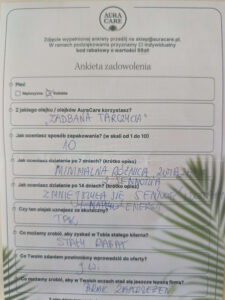 AURA
CARE
Zdjęcie wypełnionej ankiety prześlij na sklep@auracare.pl.
W ramach podziękowania przyznamy Ci indywidualny
kod rabatowy o wartości
Ankieta zadowolenia
Płeć
Mężczyzna Kobieta
Z jakiego olejku / olejków AuraCare korzystasz?
"ZADBANA TARCZYCA"
Jak oceniasz sposób zapakowania? (w skali od 1 do 10)
10
Jak oceniasz działanie po 7 dniach? (krótko opisz)
MINIMALNA RÓŻNICA
Jak oceniasz działanie po 14 dniach? (krótko opisz)
ZMNIEJSZYŁA SIĘ SENNOŚĆ
Czy ten olejek uznajesz za skuteczny?
TAK
Co możemy zrobić, aby zyskać w Tobie stałego klienta?
STAŁY RABAT
Co Twoim zdaniem powinniśmy wprowadzić do oferty?
J.W.
Co możemy zrobić, aby w Twoich oczach stać się jeszcze lepszą firmą?